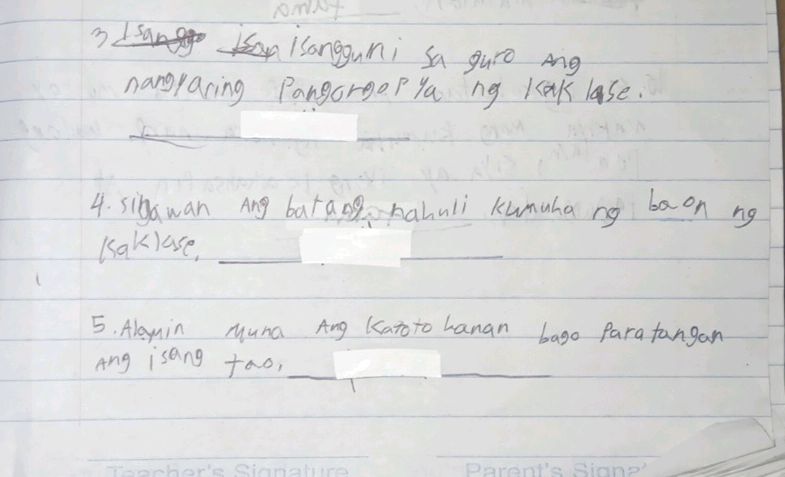 3 isangguni sa guro Ang
nangyaring Pangangopya ng kaklase.
4. sigawan Ang batang nahuli kumuha ng baon ng
kaklase.
5. Alamin muna Ang katotohanan bago Paratangan
Ang isang tao.
Teacher's Signature Parent's